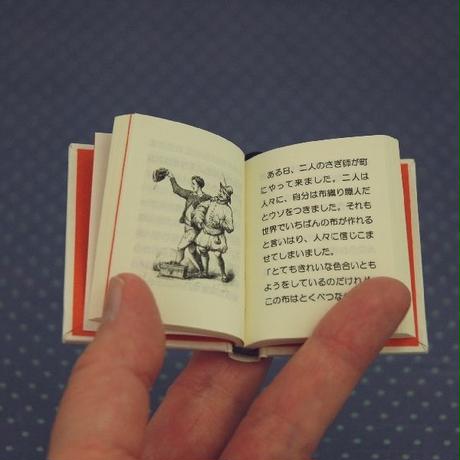 ある日、二人のさぎ師が町
にやって来ました。二人は
人々に、自分は布織り職人だ
とウソをつきました。それも
世界でいちばんの布が作れる
と言いはり、人々に信じこま
せてしまいました。
「とてもきれいな色合いとも
ようをしているのだけれ
この布はとくべつな